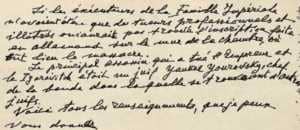 Si les exécuteurs de la Famille Impériale
n'avaient été que de tueurs professionnels et
illettrés on aurait pas trouvé l'inscription faite
en allemand sur le mur de la chambre où
eut lieu le massacre.
Le principal assassin qui a tué l'Empereur et
le Tzarévitch était un juif Yankel Yourovsky, chef
de la bande dans laquelle se trouvaient d'autres
Juifs.
Voici tous les renseignements, que je peux
vous donner